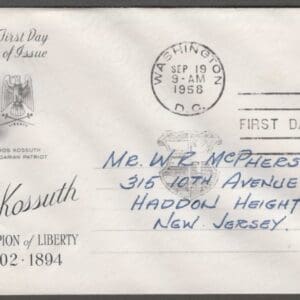 First Day
of Issue
WASHINGTON
SEP 19
9-AM
1958
D.C.
FIRST DA
OS KOSSUTH
GARIAN PATRIOT
Mr. W R McPHERS
315 10TH AVENUE
HADDON HEIGHT
NEW JERSEY.
Kossuth
PION of LIBERTY
02 - 1894